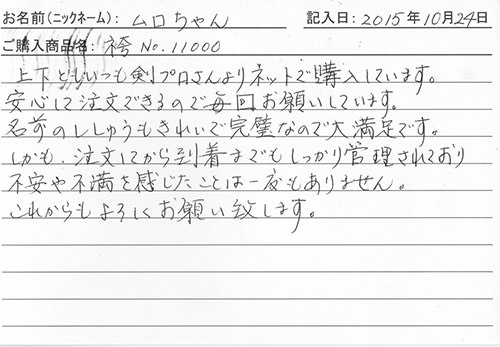 お名前(ニックネーム): ムロちゃん 記入日:2015年10月24日
ご購入商品名: 袴 No.11000
上下どもいつも剣プロさんよりネットで購入しています。
安心して注文できるので毎回お願いしています。
名前のししゅうもきれいで完璧なので大満足です。
しかも、注文してから到着までもしっかり管理されており
不安や不満を感じたことは一度もありません。
これからもよろしくお願い致します。